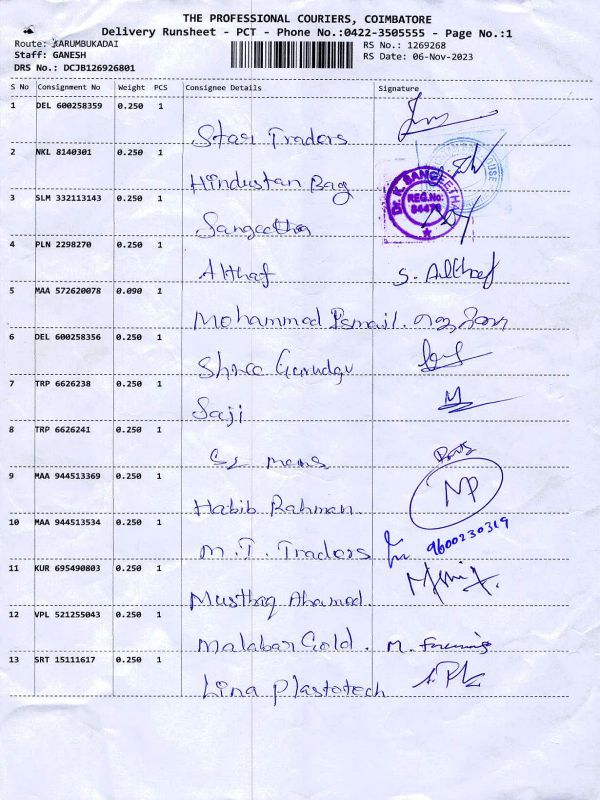 THE PROFESSIONAL COURIERS, COIMBATORE
Delivery Runsheet - PCT - Phone No.:0422-3505555 - Page No.:1
Route: KARUMBUKADAI
Staff: GANESH
DRS No.: DCJB126926801
RS No.: 1269268
RS Date: 06-Nov-2023
S No Consignment No Weight PCS Consignee Details Signature
1 DEL 600258359 0.250 1
Star Traders
2 NKL 8140301 0.250 1
Hindustan Bag
3 SLM 332113143 0.250 1
Sangeetha
Dr. K. SANGEETHA
REG.No:
84476
4 PLN 2298270 0.250 1
Althaf S. Althaf
5 MAA 572620078 0.090 1
Mohammed Ismail.
6 DEL 600258356 0.250 1
Shree Garudgu
7 TRP 6626238 0.250 1
Saji M
8 TRP 6626241 0.250 1
mens
9 MAA 944513369 0.250 1
Habib Rahman MP
10 MAA 944513534 0.250 1
M. T. Traders 9600230319
11 KUR 695490803 0.250 1
Musthaq Ahamed.
12 VPL 521255043 0.250 1
Malabar Gold. M.
13 SRT 15111617 0.250 1
Lina Plastotech